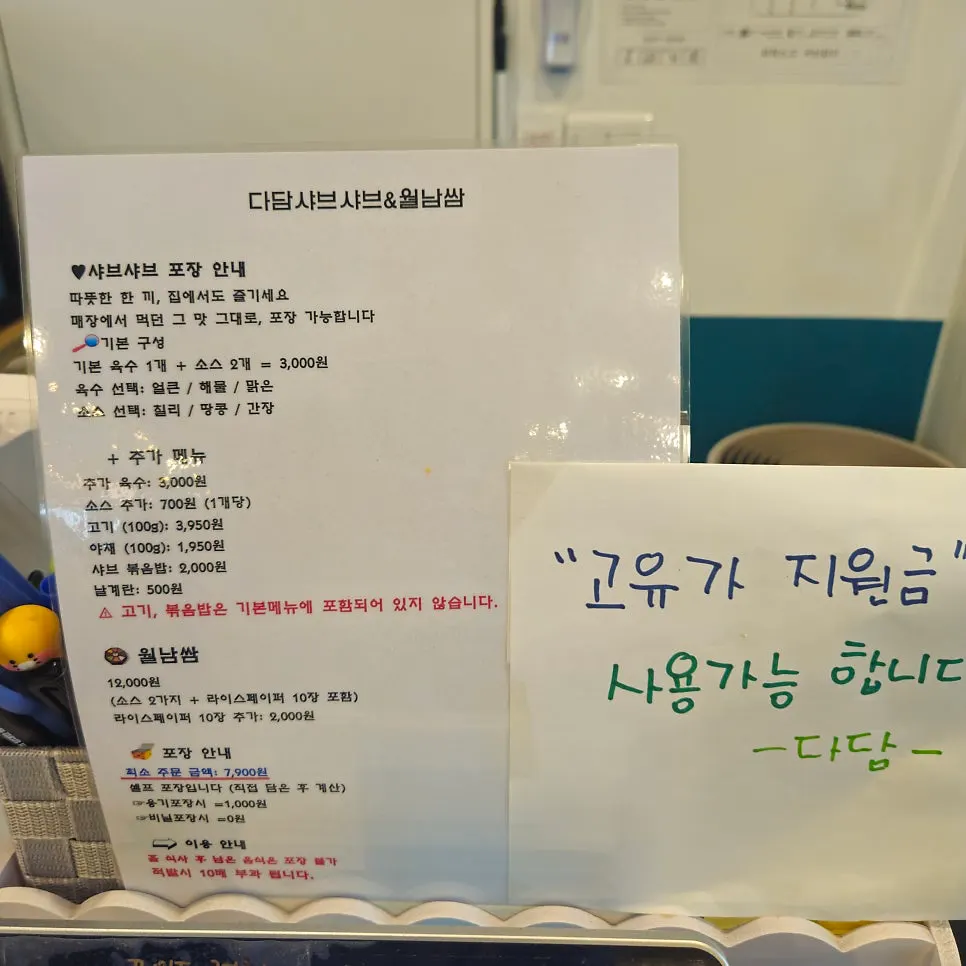 다담샤브샤브&월남쌈
♥샤브샤브 포장 안내
따뜻한 한 끼, 집에서도 즐기세요
매장에서 먹던 그 맛 그대로, 포장 가능합니다
기본 구성
기본 육수 1개 + 소스 2개 = 3,000원
육수 선택: 얼큰 / 해물 / 맑은
소스 선택: 칠리 / 땅콩 / 간장
+ 추가 메뉴
추가 육수: 3,000원
소스 추가: 700원 (1개당)
고기 (100g): 3,950원
야채 (100g): 1,950원
샤브 볶음밥: 2,000원
날계란: 500원
⚠ 고기, 볶음밥은 기본메뉴에 포함되어 있지 않습니다.
월남쌈
12,000원
(소스 2가지 + 라이스페이퍼 10장 포함)
라이스페이퍼 10장 추가: 2,000원
포장 안내
최소 주문 금액: 7,900원
셀프 포장입니다 (직접 담은 후 계산)
☞용기포장시 =1,000원
☞비닐포장시 =0원
⇨ 이용 안내
홀 식사 후 남은 음식은 포장 불가
적발시 10배 부과 됩니다.
"고유가 지원금"
사용가능 합니다
-다담-